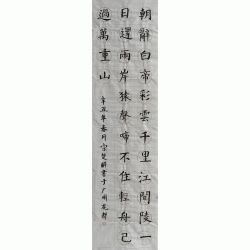 朝辭白帝彩雲千里江間陵一
日還兩岸猿聲啼不住輕舟已
過萬重山
辛丑年春月宗楚書于广州花都